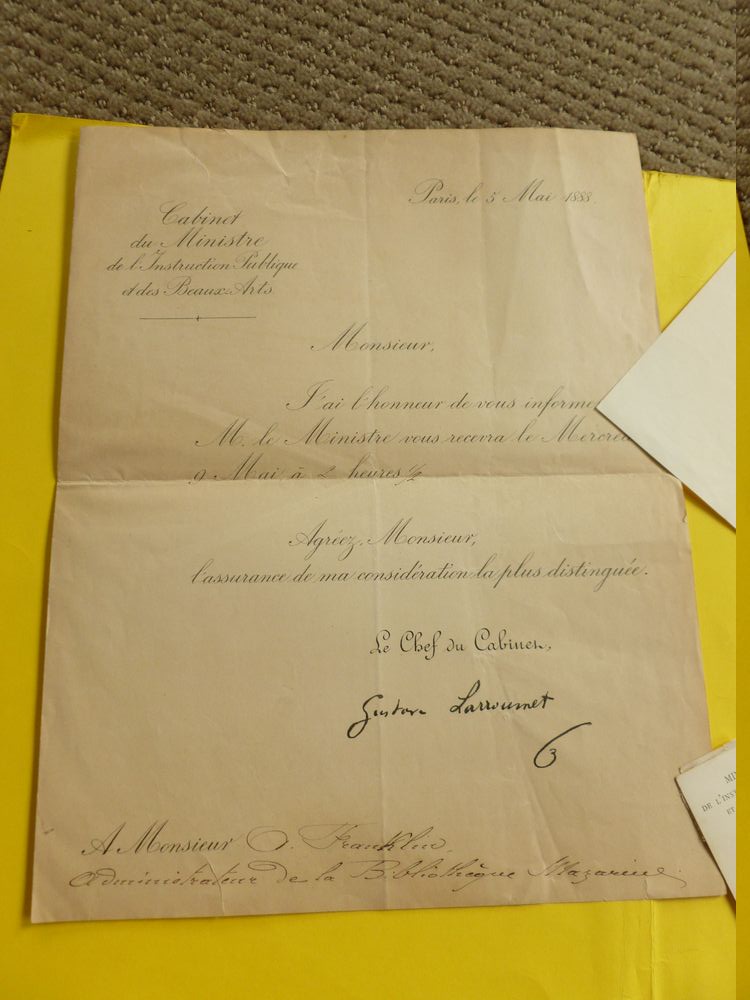 Paris, le 5 Mai 1888.
Cabinet
du Ministre
de l'Instruction Publique
et des Beaux-Arts.
Monsieur,
J'ai l'honneur de vous informe
M. le Ministre vous recevra le Mercre
9 Mai à 2 heures 1/2
Agréez, Monsieur,
l'assurance de ma considération la plus distinguée.
Le Chef du Cabinet,
Gustave Larroumet
A Monsieur A. Franklin,
Administrateur de la Bibliothèque Mazarine
MI
DE L'INS
ET